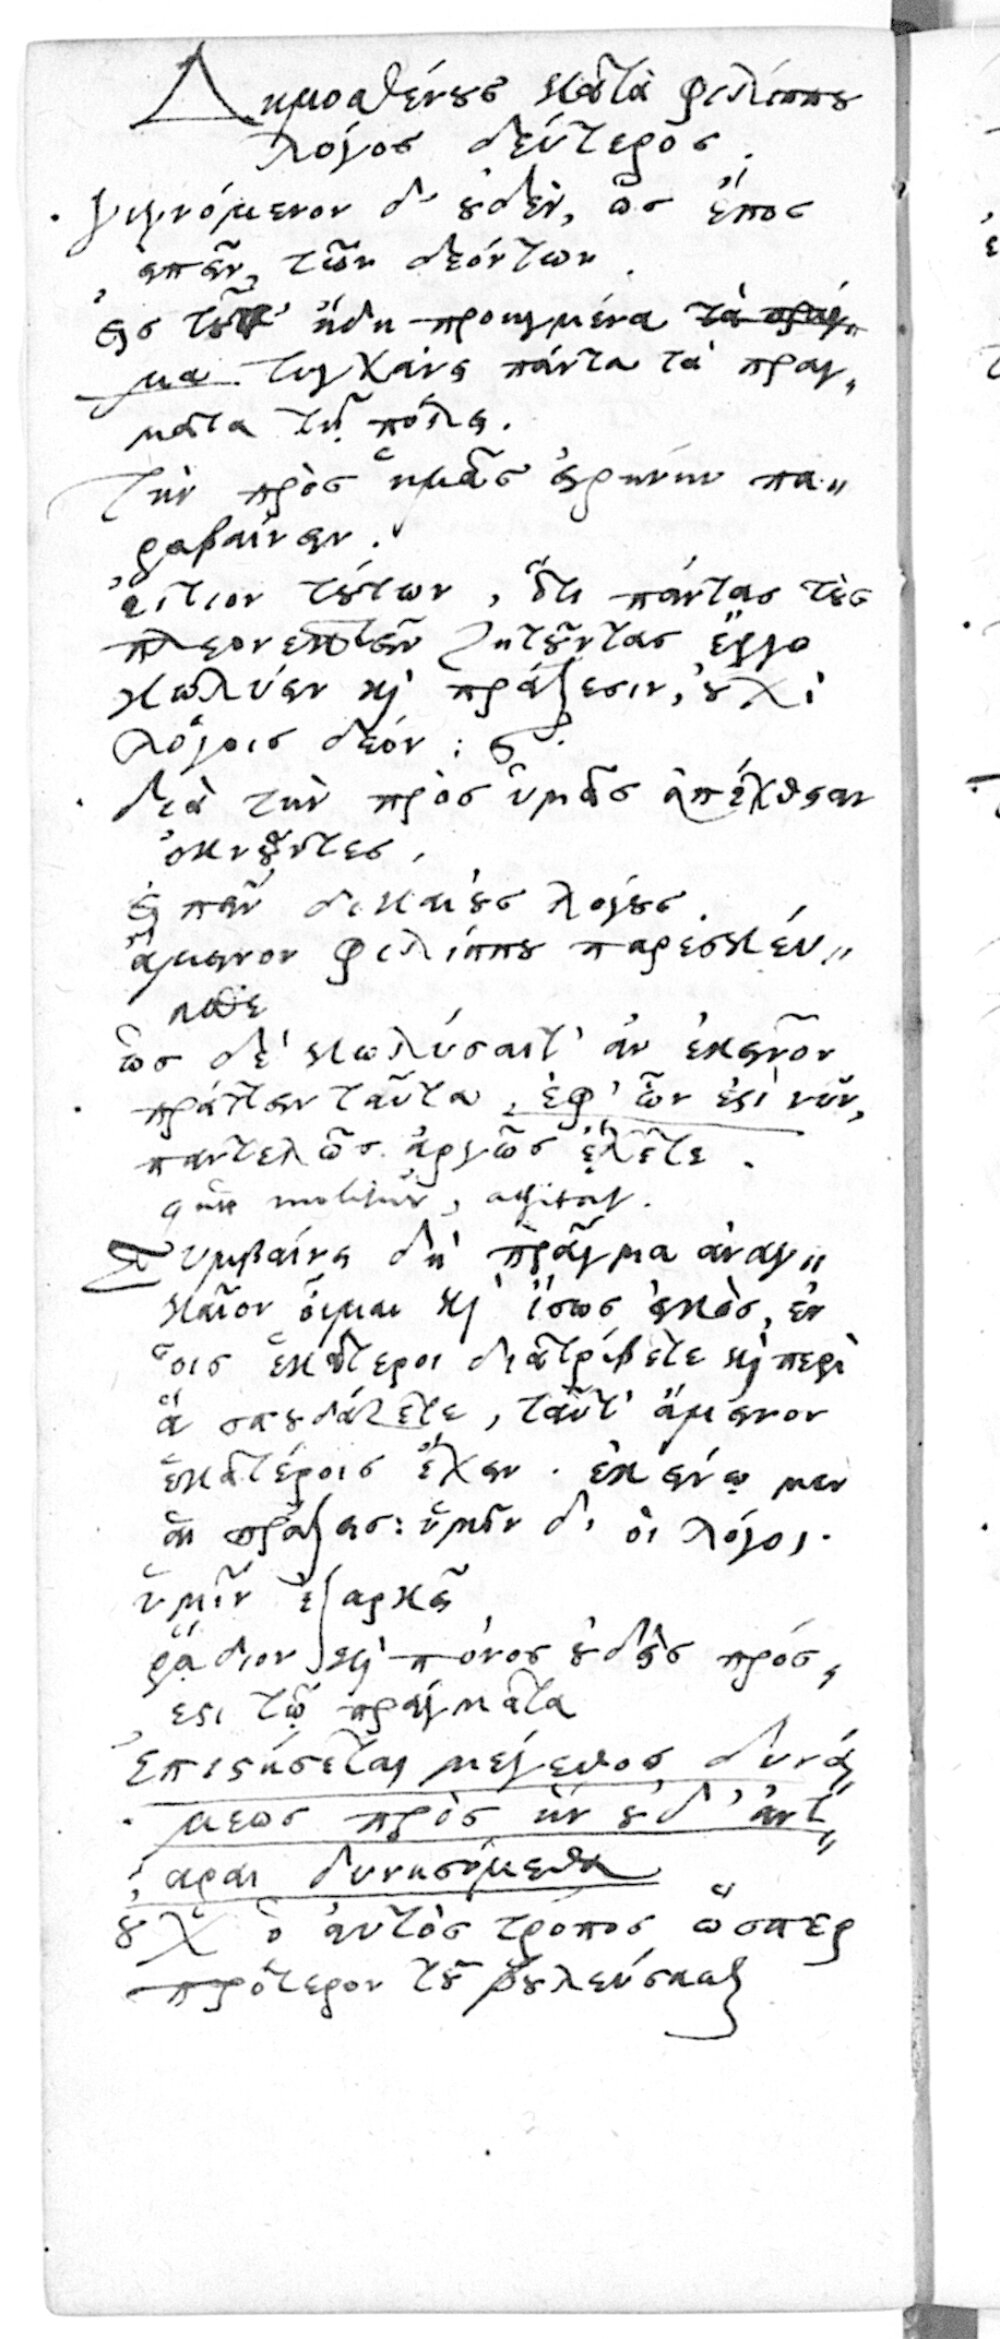 Δημοσθένους κατὰ φιλίππου
λόγος δεύτερος.
γιγνόμενον δ' οὐδὲν, ὡς ἔπος
εἰπεῖν, τῶν δεόντων.
εἰς τοῦτ' ἤδη προηγμένα τὰ πράγ„
μα τυγχάνει πάντα τὰ πραγ„
ματα τῇ πόλει.
τὴν πρὸς ἡμᾶς εἰρήνην πα„
ραβαίνειν.
αἴτιον τούτων, ὅτι πάντας τοὺς
πλεονεκτεῖν ζητοῦντας ἔργῳ
κωλύειν καὶ πράξεσιν, οὐχὶ
λόγοις δέον:
διὰ τὴν πρὸς ὑμᾶς ἀπέχθειαν
ὀκνοῦντες,
εἰπεῖν δικαίους λόγους.
ἄμεινον φιλίππου παρεσκεύ„
ασθε
ὡς δὲ κωλύσαιτ' ἂν ἐκεῖνον
πράττειν ταῦτα, ἐφ' ὧν ἐστὶ νῦν,
παντελῶς ἀργῶς ἔχετε.
quae molitur, agitat.
Συμβαίνει δὴ πρᾶγμα ἀναγ„
καῖον οἶμαι καὶ ἴσως εἰκὸς, ἐν
οἷς ἑκάτεροι διατρίβετε καὶ περὶ
ἃ σπουδάζετε, ταῦτ' ἄμεινον
ἑκατέροις ἔχειν. ἐκείνῳ μὲν
αἱ πράξεις: ὑμῖν δὲ οἱ λόγοι.
ὑμῖν ἐξαρκεῖ
ῥᾴδιον καὶ πόνος οὐδεὶς πρόσ„
εστι τῷ πράγματα
ἐπιστήσεται μέγεθος δυνά„
μεως πρὸς ἣν οὐδ' ἀντ„
ᾶραι δυνησόμεθα
οὐχ ὁ αὐτὸς τρόπος ὥσπερ
πρότερον τοῦ βουλεύεσθαι